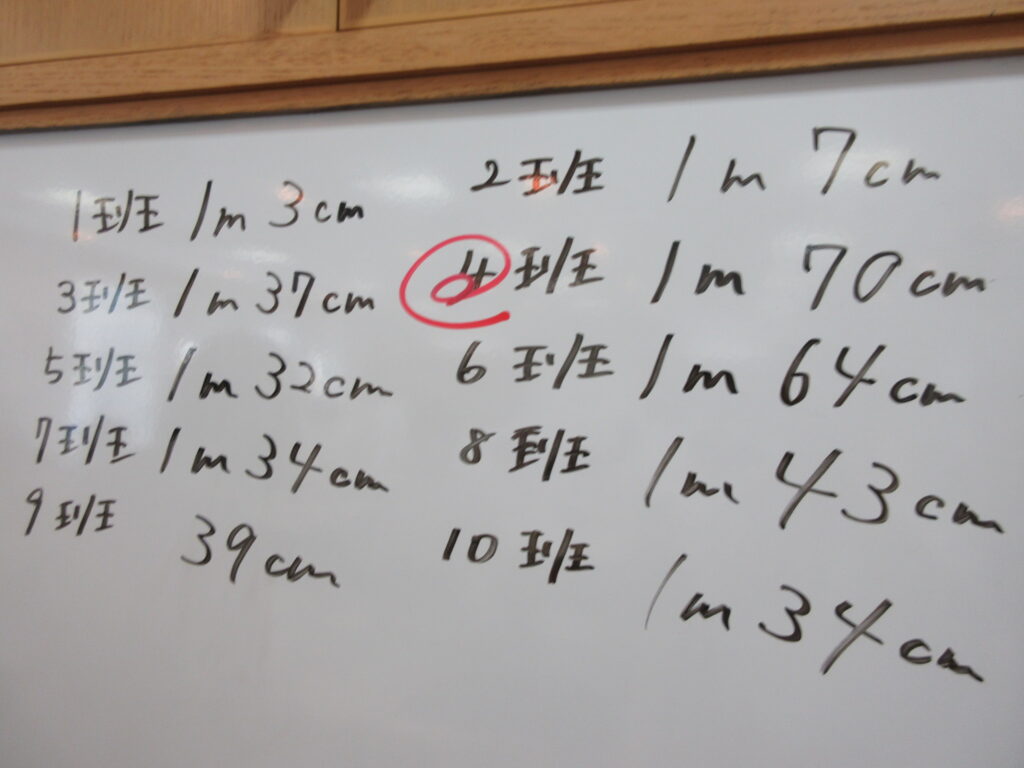 1班 1m 3cm
2班 1m 7cm
3班 1m 37cm
4班 1m 70cm
5班 1m 32cm
6班 1m 64cm
7班 1m 34cm
8班 1m 43cm
9班 39cm
10班 1m 34cm